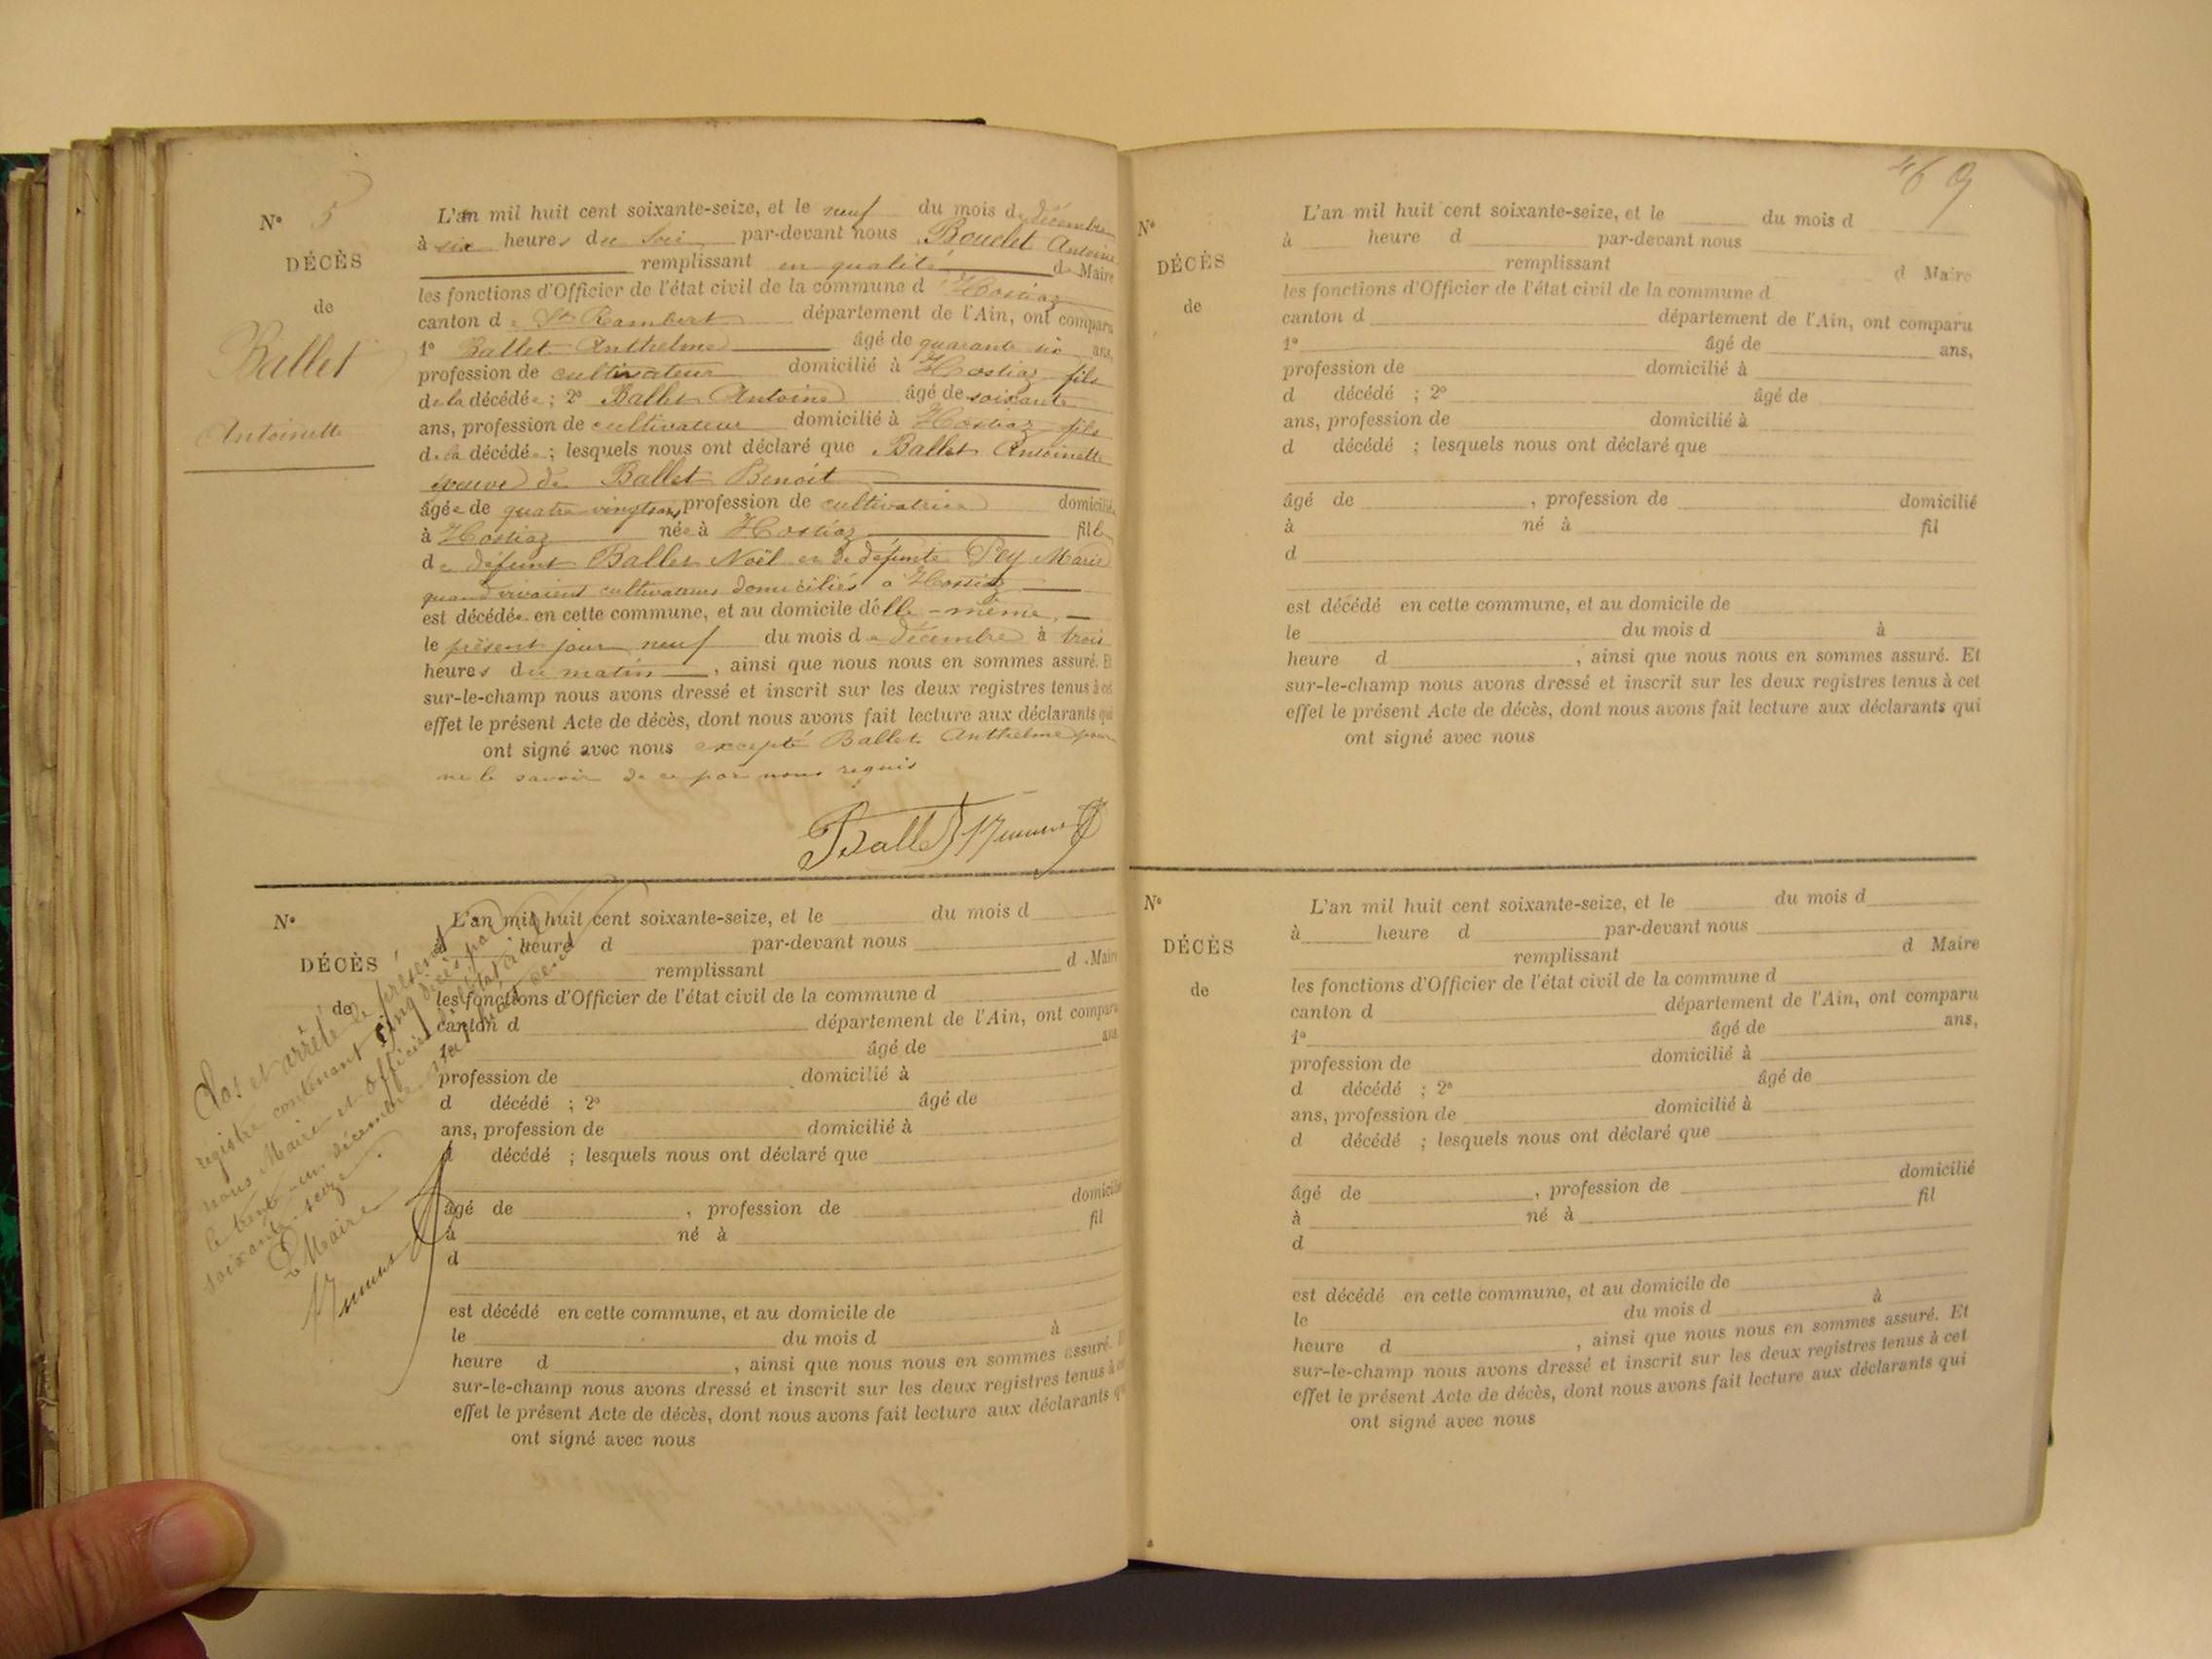 N° 5
DÉCÈS
de
Ballet
Antoinette
L'an mil huit cent soixante-seize, et le neuf du mois de décembre
à six heures du soir par-devant nous Bouclet Antoine
remplissant en qualité de Maire
les fonctions d'Officier de l'état civil de la commune d'Hostiaz
canton de St Rambert département de l'Ain, ont comparu
1° Ballet Anthelme âgé de quarante six ans,
profession de cultivateur domicilié à Hostiaz fils
de la décédée ; 2° Ballet Antoine âgé de soixante
ans, profession de cultivateur domicilié à Hostiaz fils
de la décédée ; lesquels nous ont déclaré que Ballet Antoinette
veuve de Ballet Benoit
âgée de quatre vingts ans, profession de cultivatrice domiciliée
à Hostiaz née à Hostiaz fille
de défunt Ballet Noël et de défunte Pey Marie
quand vivaient cultivateurs domiciliés à Hostiaz
est décédée en cette commune, et au domicile d'elle-même,
le présent jour neuf du mois de décembre à trois
heures du matin, ainsi que nous nous en sommes assuré. Et
sur-le-champ nous avons dressé et inscrit sur les deux registres tenus à cet
effet le présent Acte de décès, dont nous avons fait lecture aux déclarants qui
ont signé avec nous excepté Ballet Anthelme pour
ne le savoir de ce par nous requis
Ballet
N°
DÉCÈS
de
Clos et arrêté le présent
registre contenant cinq décès par
nous Maire et officier de l'état civil
le trente-un décembre mil huit cent
soixante-seize.
Le Maire
L'an mil huit cent soixante-seize, et le du mois d
à heure d par-devant nous
remplissant d Maire
les fonctions d'Officier de l'état civil de la commune d
canton d département de l'Ain, ont comparu
1° âgé de ans
profession de domicilié à
d décédé ; 2° âgé de
ans, profession de domicilié à
d décédé ; lesquels nous ont déclaré que
âgé de , profession de domicilié
à né à fil
d
est décédé en cette commune, et au domicile de
le du mois d à
heure d , ainsi que nous nous en sommes assuré. E
sur-le-champ nous avons dressé et inscrit sur les deux registres tenus à cet
effet le présent Acte de décès, dont nous avons fait lecture aux déclarants qui
ont signé avec nous
469
N°
DÉCÈS
de
L'an mil huit cent soixante-seize, et le du mois d
à heure d par-devant nous
remplissant d Maire
les fonctions d'Officier de l'état civil de la commune d
canton d département de l'Ain, ont comparu
1° âgé de ans,
profession de domicilié à
d décédé ; 2° âgé de
ans, profession de domicilié à
d décédé ; lesquels nous ont déclaré que
âgé de , profession de domicilié
à né à fil
d
est décédé en cette commune, et au domicile de
le du mois d à
heure d , ainsi que nous nous en sommes assuré. Et
sur-le-champ nous avons dressé et inscrit sur les deux registres tenus à cet
effet le présent Acte de décès, dont nous avons fait lecture aux déclarants qui
ont signé avec nous
N°
DÉCÈS
de
L'an mil huit cent soixante-seize, et le du mois d
à heure d par-devant nous
remplissant d Maire
les fonctions d'Officier de l'état civil de la commune d
canton d département de l'Ain, ont comparu
1° âgé de ans,
profession de domicilié à
d décédé ; 2° âgé de
ans, profession de domicilié à
d décédé ; lesquels nous ont déclaré que
âgé de , profession de domicilié
à né à fil
d
est décédé en cette commune, et au domicile de
le du mois d à
heure d , ainsi que nous nous en sommes assuré. Et
sur-le-champ nous avons dressé et inscrit sur les deux registres tenus à cet
effet le présent Acte de décès, dont nous avons fait lecture aux déclarants qui
ont signé avec nous